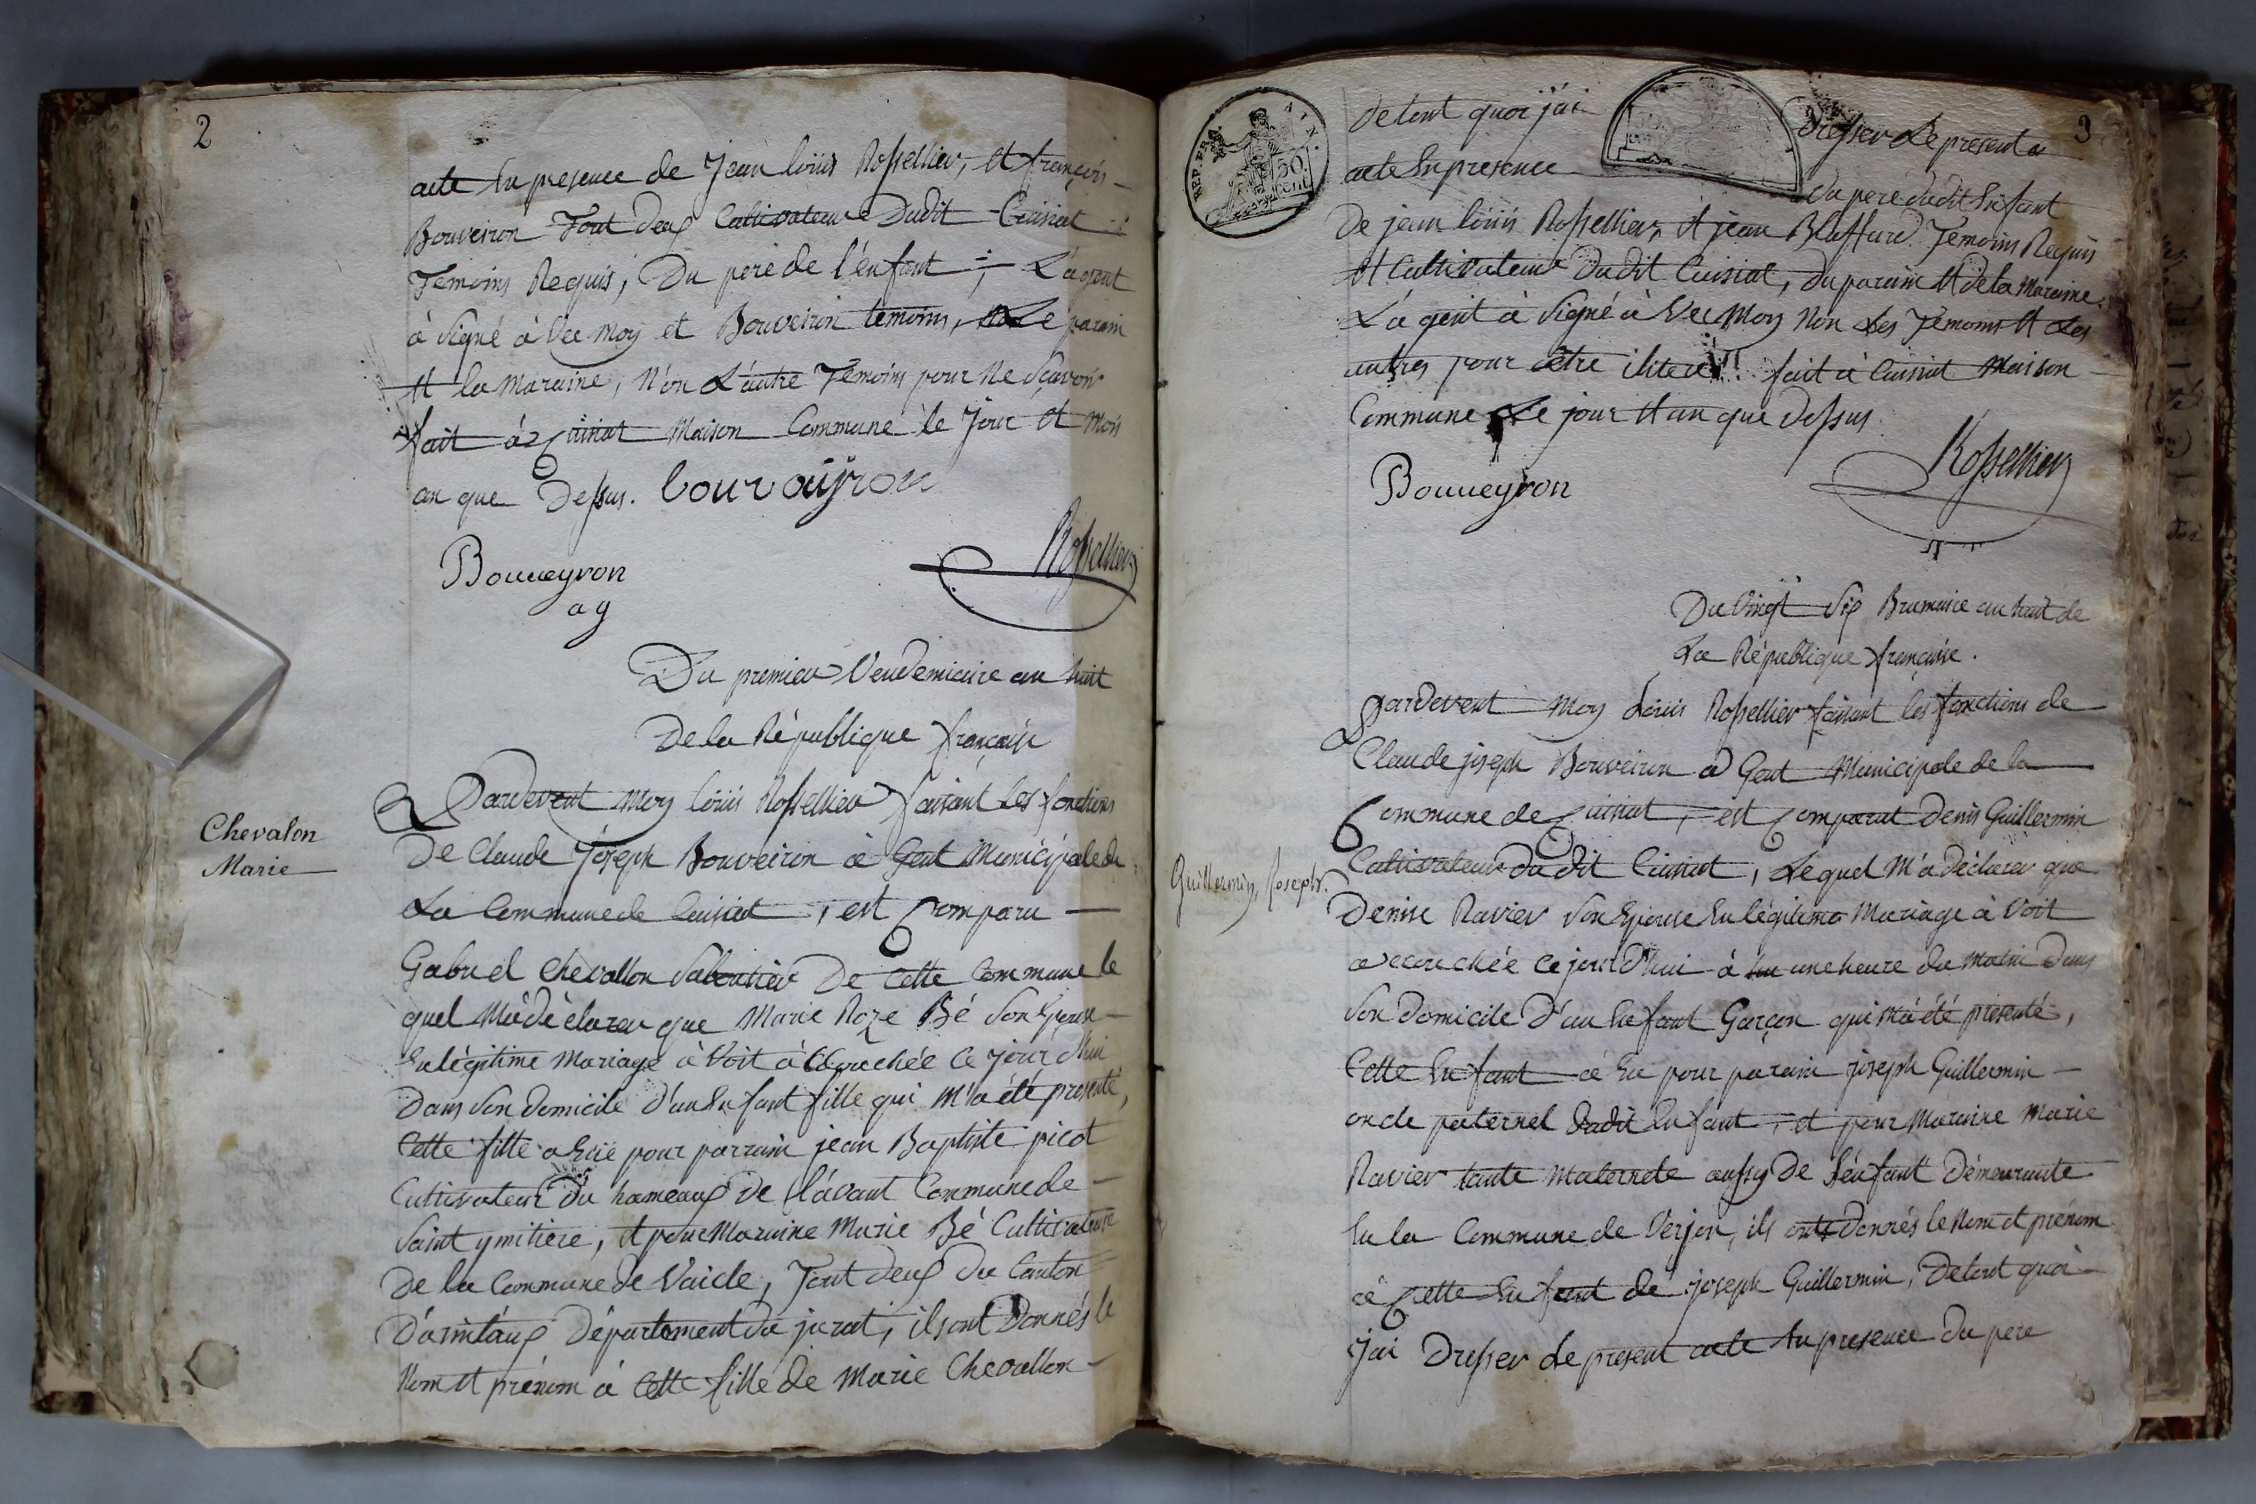 2
acte En presence de Jean loüis Rossellier, et françois
Bouveiron Tout deux Cultivateur Dudit Cuisiat
Temoins Requis, Du pere de l'énfant ; L'agent
à Signé à Vec moy et Bouveiron temoins, Le parain
et la maraine, Non L'autre Témoins pour Ne Scavoir
fait à Cuisiat Maison Commune le Jour et Mois
an que Dessus. bouvaiiron
Bouveyron
ag
Rossellier
Du premier Vendemiaire an huit
De la République françaisse
Chevalon
Marie
Pardevent moy loüis Rossellier faisant Les fonctions
De Claude Joseph Bouveiron a Gent Municipale de
La Commune de Cuisiat, est Comparu
Gabriel Chevallon Sabottier De Cette Commune le
quel M'à dèclarer que Marie Roze Bé Son Epouse
En légitime Mariage à Voit àCCouchée Ce jour d'hui
Dans Son Domicile d'un Enfant fille qui M'a été presenté,
Cette fille a Eüe pour parrain jean Baptiste picot
Cultivateur Du hameaux De Lávant Commune de
Saint ymitiere, et pour Maraine Marie Bé Cultivateur
De la Commune de Vaicle, Tout deux Du Canton
D'arintaux Département du jurat, ils ont Donnés le
Nom et prénom à Cette fille de Marie Chevallon
3
REP. FRA. AIN.
50 cent
De tout quoi j'ai Dresser Le present
acte En presence Du pere dudit Enfant
De jean loüis Rossellier, et jean Bluffard Temoins Requis
et Cultivateur Dudit Cuisiat, du parain et de la Maraine.
L'a gent à Signé à Vec Moy Non Les Témoins et Les
autres pour être iliteré. fait à Cuisiat Maison
Commune Le jour et an que Dessus.
Bouveyron
Rossellier
Du Vingt Six Brumaire an huit de
La République françaisse.
Pardevent Moy Loüis Rossellier faisant les fonctions de
Claude joseph Bouveiron a Gent Municipale de la
Commune de Cuisiat, est Comparut Denis Guillermin
Guillermin, Joseph.
Cultivateur du dit Cuisiat, Lequel M'a déclarer que
Denise Ravier Son Epouse En légitime Mariage à Voit
accouchée Ce jour d'hui à une heure du Matin Dans
Son Domicile d'un Enfant Garçon qui M'a été presenté,
Cette Enfant à Eue pour parain joseph Guillermin
oncle paternel dudit Enfant, et pour Maraine Marie
Ravier tante Maternele aussy De l'énfant Démeurante
En la Commune de Verjon, ils onts donnés le Nom et prénom
à Cette Enfant de joseph Guillermin, De tout quoi
j'ai Dresser Le present acte En presence Du pere